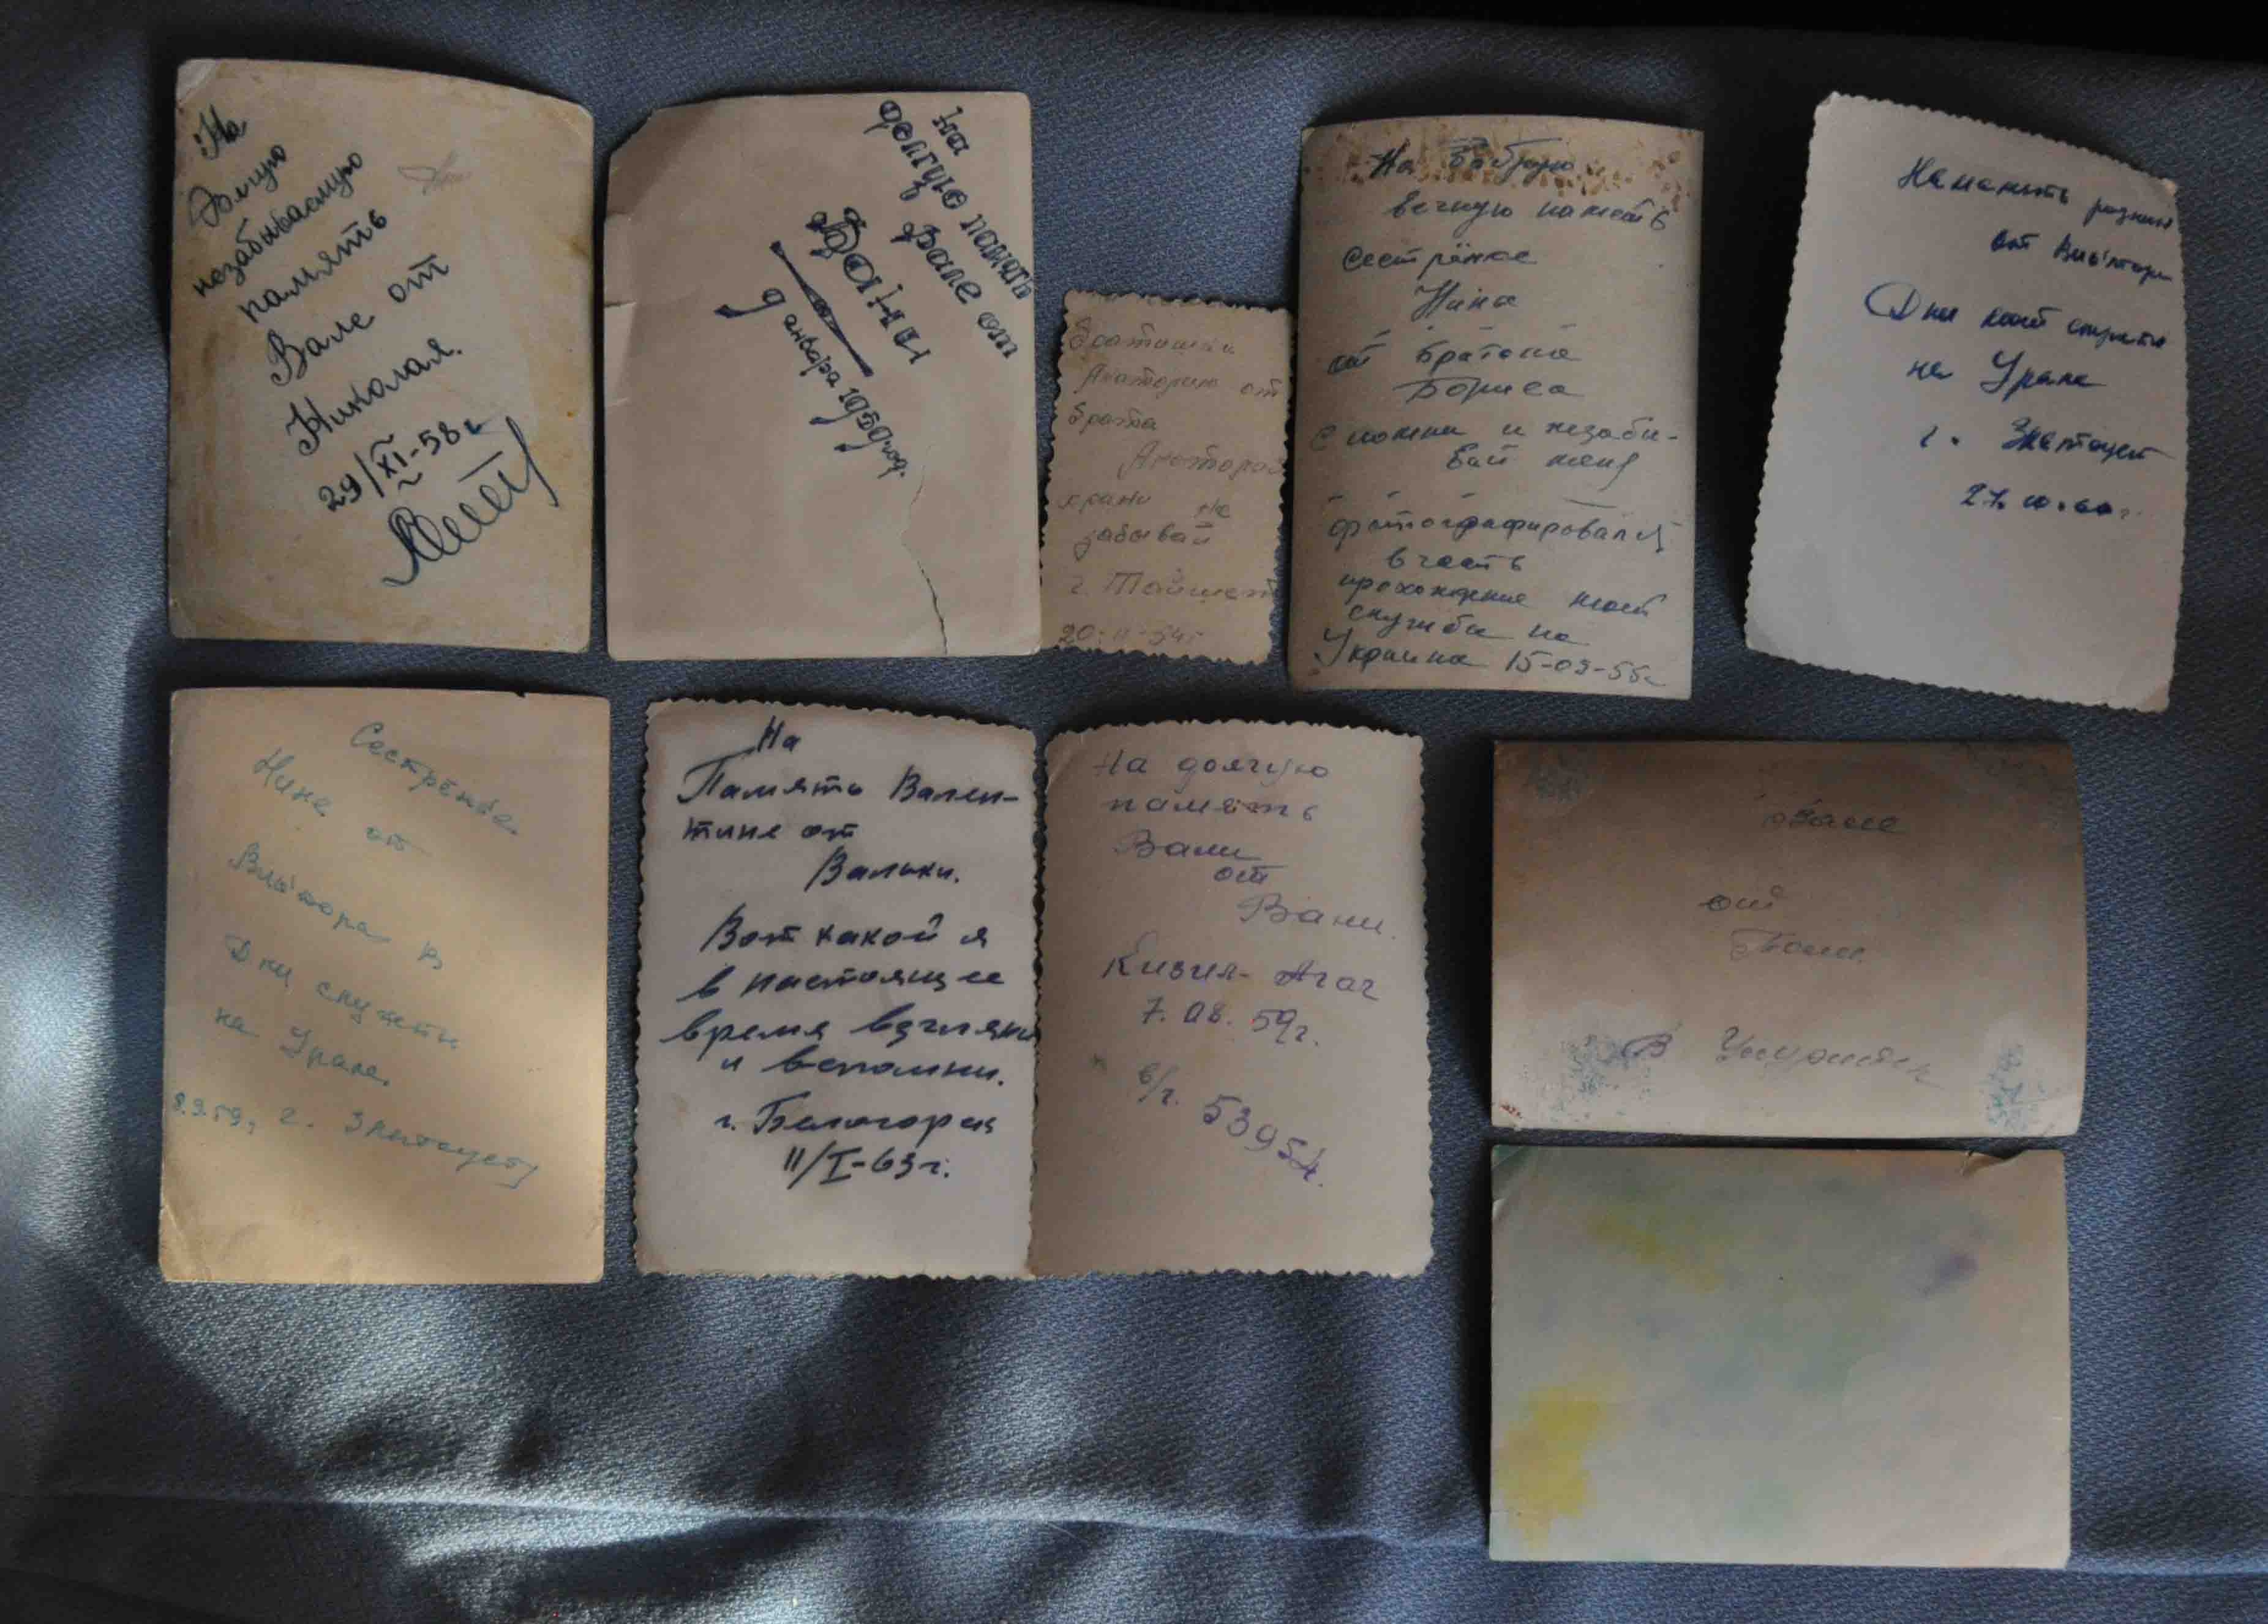 На
Долгую
незабываемую
память
Вале от
Николая.
29/XI-58г
на
долгую память
Вале от
Вани
9 января 1959 год.
Братишки
Анаторию от
брата
храни не
забывай
г. Тайшет
20-11-54г
На
вечную паметь
Сестрёнке
Нина
от Братона
Бориса
Спомни и незабы-
вай меня
фотографировался
в честь
прохождение моей
службы на
Украина 15-09-55г
На память
от
Дни моей службы
на Урале
г. Златоуст
27.10.60г.
Сестрёнке
Нине от
в
Дни службы
на Урале.
8.9.59, г. Златоуст
На
Память Вален-
тине от
Вальки.
Вот какой я
в настоящее
время взгляни
и вспомни.
г. Белогорск
11/I-63г.
На долгую
память
Вали
от
Вани.
Кизил-Агач
7.08.59г.
в/ч. 53954.
Вале
от
Толи.
В